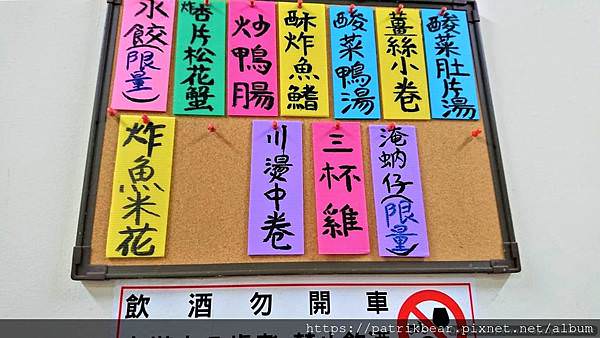 水餃(限量)
炸杏片松花蟹
炒鴨腸
酥炸魚鰭
酸菜鴨湯
薑絲小卷
酸菜肚片湯
炸魚米花
川燙中卷
三杯雞
淹蚋仔(限量)
飲酒勿開車
https://patrikbear.pixnet.net/album